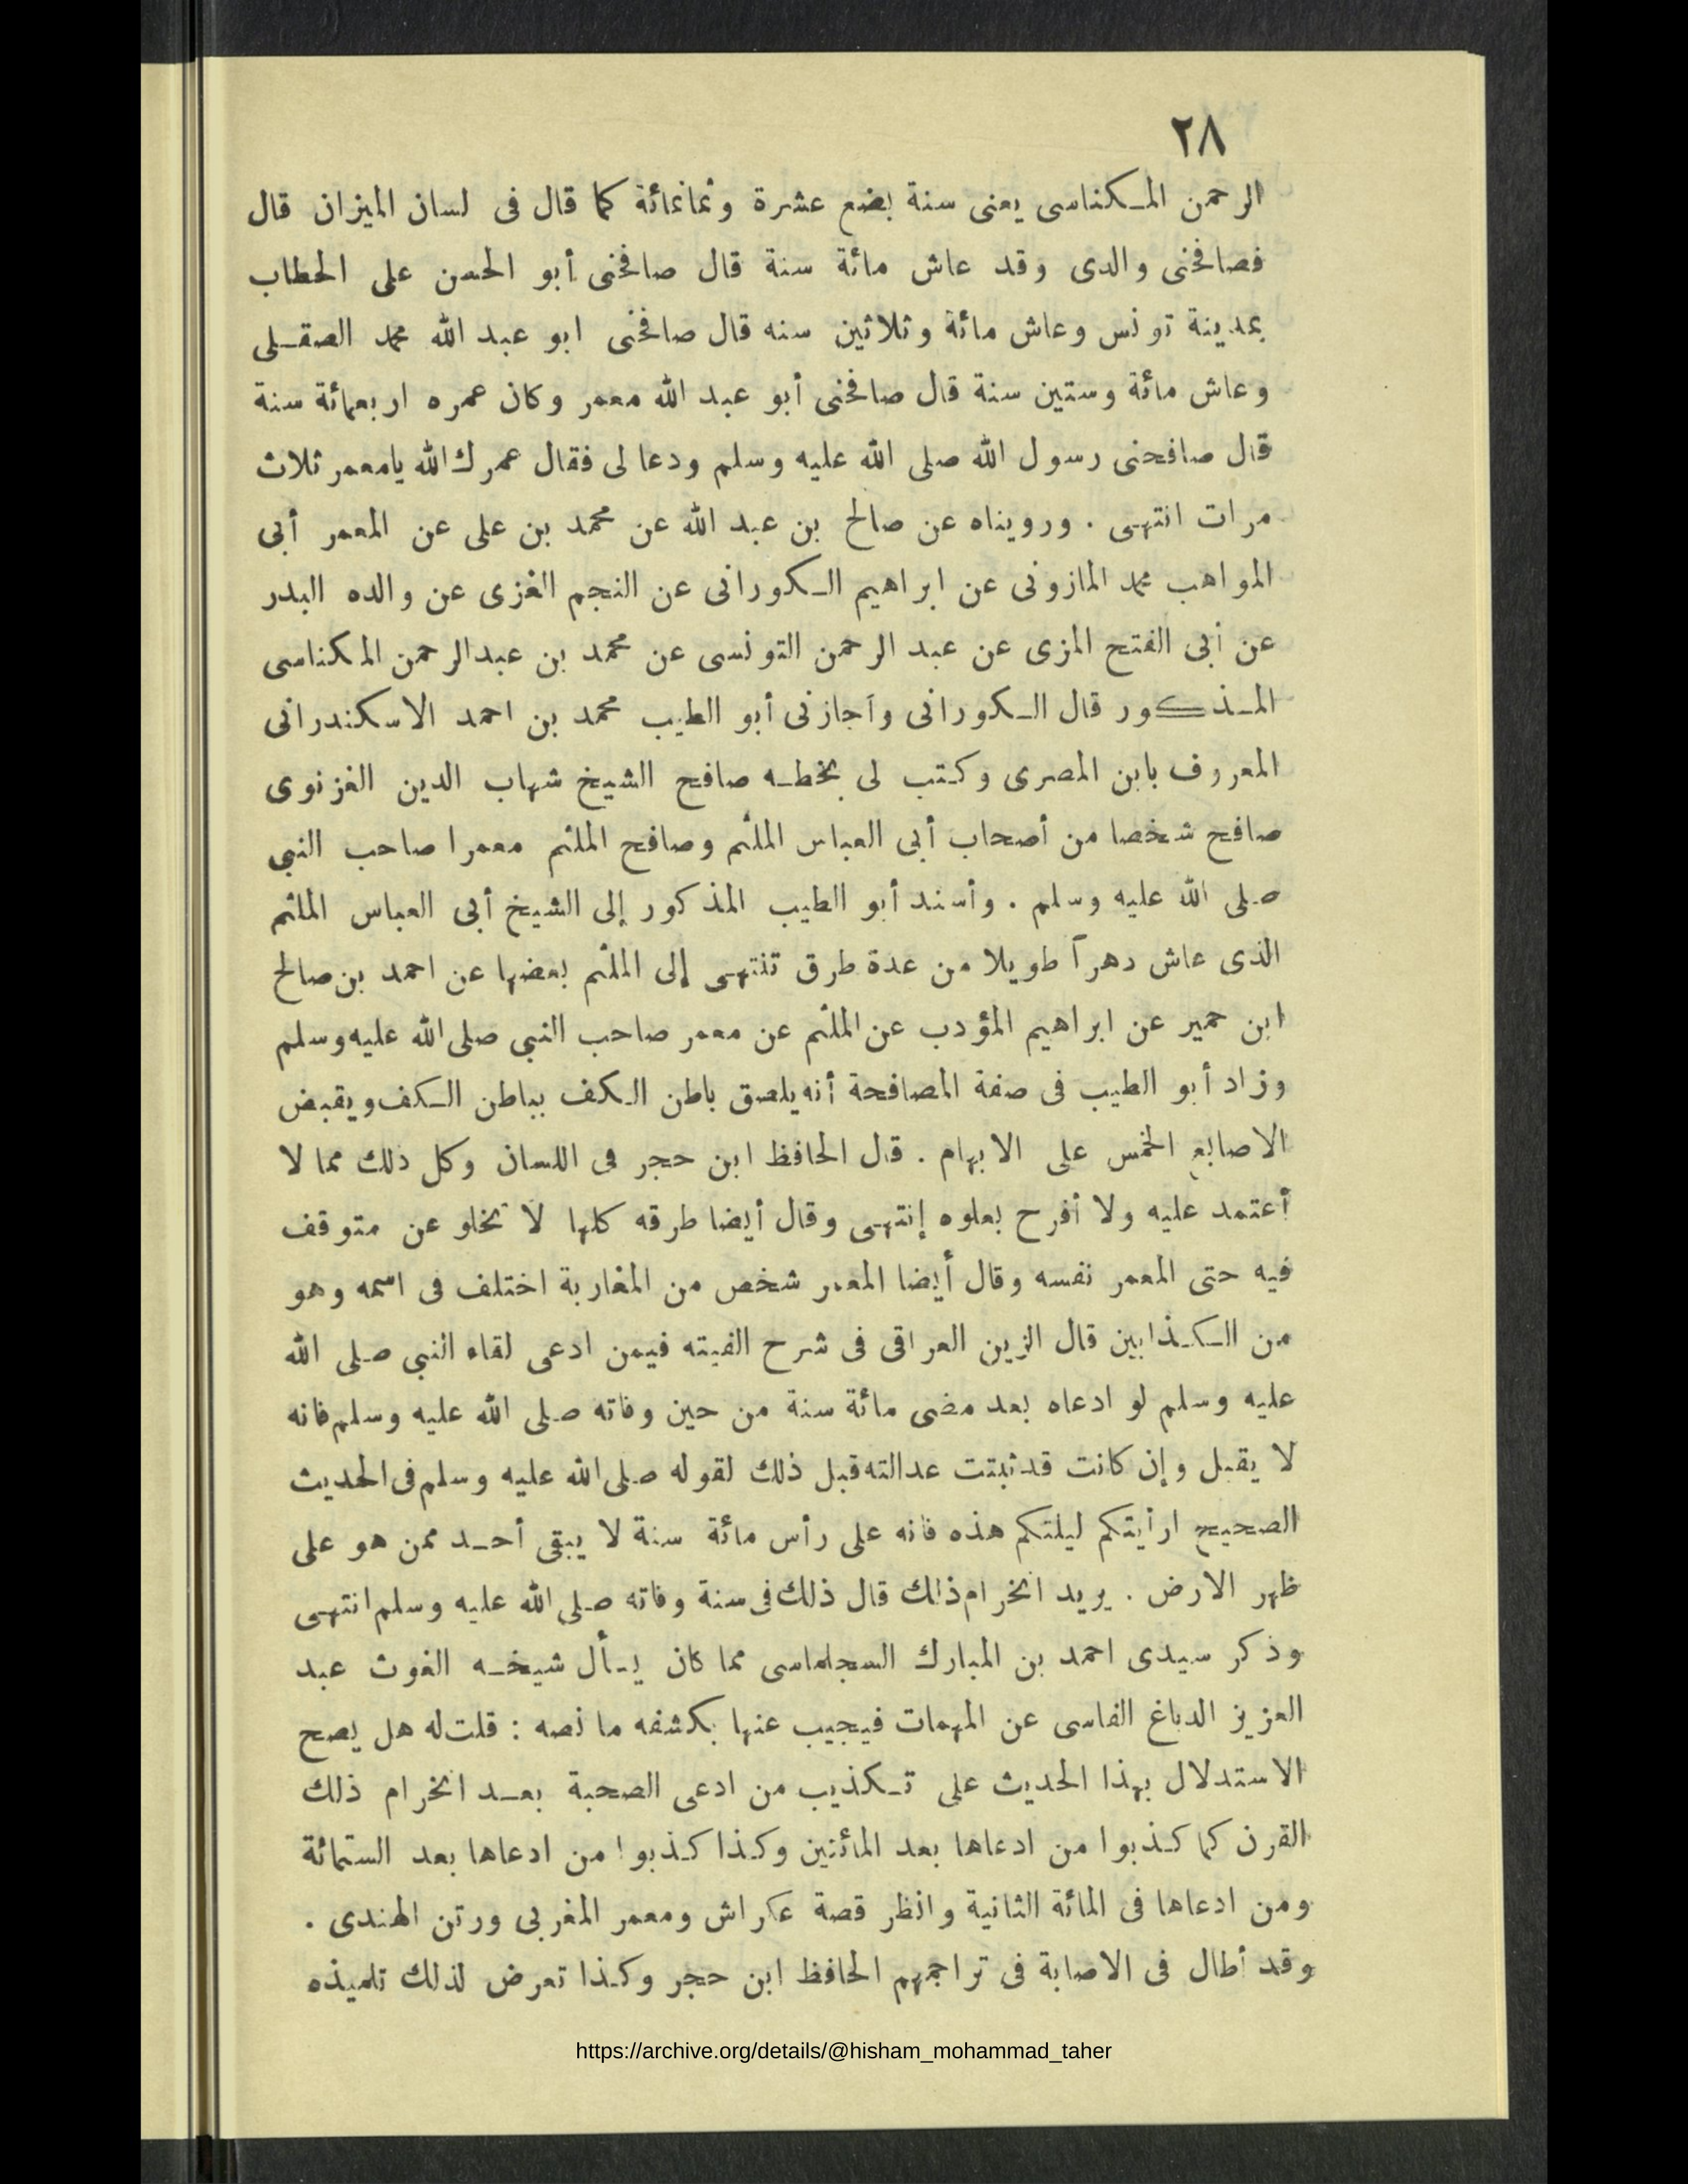 ٢٨
الرحمن المكناسى يعنى سنة بضع عشرة وثمانمائة كما قال فى لسان الميزان قال
فصافحنى والدى وقد عاش مائة سنة قال صافحنى أبو الحسن على الحطاب
بمدينة تونس وعاش مائة وثلاثين سنه قال صافحنى ابو عبد الله محمد الصقلى
وعاش مائة وستين سنة قال صافحنى أبو عبد الله معمر وكان عمره اربعمائة سنة
قال صافحنى رسول الله صلى الله عليه وسلم ودعا لى فقال عمرك الله يامعمر ثلاث
مرات انتهى . ورويناه عن صالح بن عبد الله عن محمد بن على عن المعمر أبى
المواهب محمد المازونى عن ابراهيم الكورانى عن النجم الغزى عن والده البدر
عن أبى الفتح المزى عن عبد الرحمن التونسى عن محمد بن عبدالرحمن المكناسى
المذكور قال الكورانى وأجازنى أبو الطيب محمد بن احمد الاسكندرانى
المعروف بابن المصرى وكتب لى بخطه صافح الشيخ شهاب الدين الغزنوى
صافح شخصا من أصحاب أبى العباس الملثم وصافح الملثم معمرا صاحب النبي
صلى الله عليه وسلم . وأسند أبو الطيب المذكور إلى الشيخ أبى العباس الملثم
الذى عاش دهراً طويلا من عدة طرق تنتهى إلى الملثم بعضها عن احمد بن صالح
ابن حمير عن ابراهيم المؤدب عن الملثم عن معمر صاحب النبي صلى الله عليه وسلم
وزاد أبو الطيب فى صفة المصافحة أنه يلصق باطن الكف بباطن الكف ويقبض
الاصابع الخمس على الابهام . قال الحافظ ابن حجر فى اللسان وكل ذلك مما لا
أعتمد عليه ولا أفرح بعلوه إنتهى وقال أيضا طرقه كلها لا تخلو عن متوقف
فيه حتى المعمر نفسه وقال أيضا المعمر شخص من المغاربة اختلف فى اسمه وهو
من الكذابين قال الزين العراقى فى شرح الفيته فيمن ادعى لقاء النبي صلى الله
عليه وسلم لو ادعاه بعد مضى مائة سنة من حين وفاته صلى الله عليه وسلم فانه
لا يقبل وإن كانت قد ثبتت عدالته قبل ذلك لقوله صلى الله عليه وسلم فى الحديث
الصحيح ارأيتكم ليلتكم هذه فانه على رأس مائة سنة لا يبقى أحد ممن هو على
ظهر الارض . يريد انخرام ذلك قال ذلك فى سنة وفاته صلى الله عليه وسلم انتهى
وذكر سيدى احمد بن المبارك السجلماسى مما كان يسأل شيخه الغوث عبد
العزيز الدباغ الفاسى عن المهمات فيجيب عنها بكشفه ما نصه : قلت له هل يصح
الاستدلال بهذا الحديث على تكذيب من ادعى الصحبة بعد انخرام ذلك
القرن كما كذبوا من ادعاها بعد المائتين وكذا كذبوا من ادعاها بعد الستمائة
ومن ادعاها فى المائة الثانية وانظر قصة عكراش ومعمر المغربى ورتن الهندى .
وقد أطال فى الاصابة فى تراجمهم الحافظ ابن حجر وكذا تعرض لذلك تلميذه
https://archive.org/details/@hisham_mohammad_taher